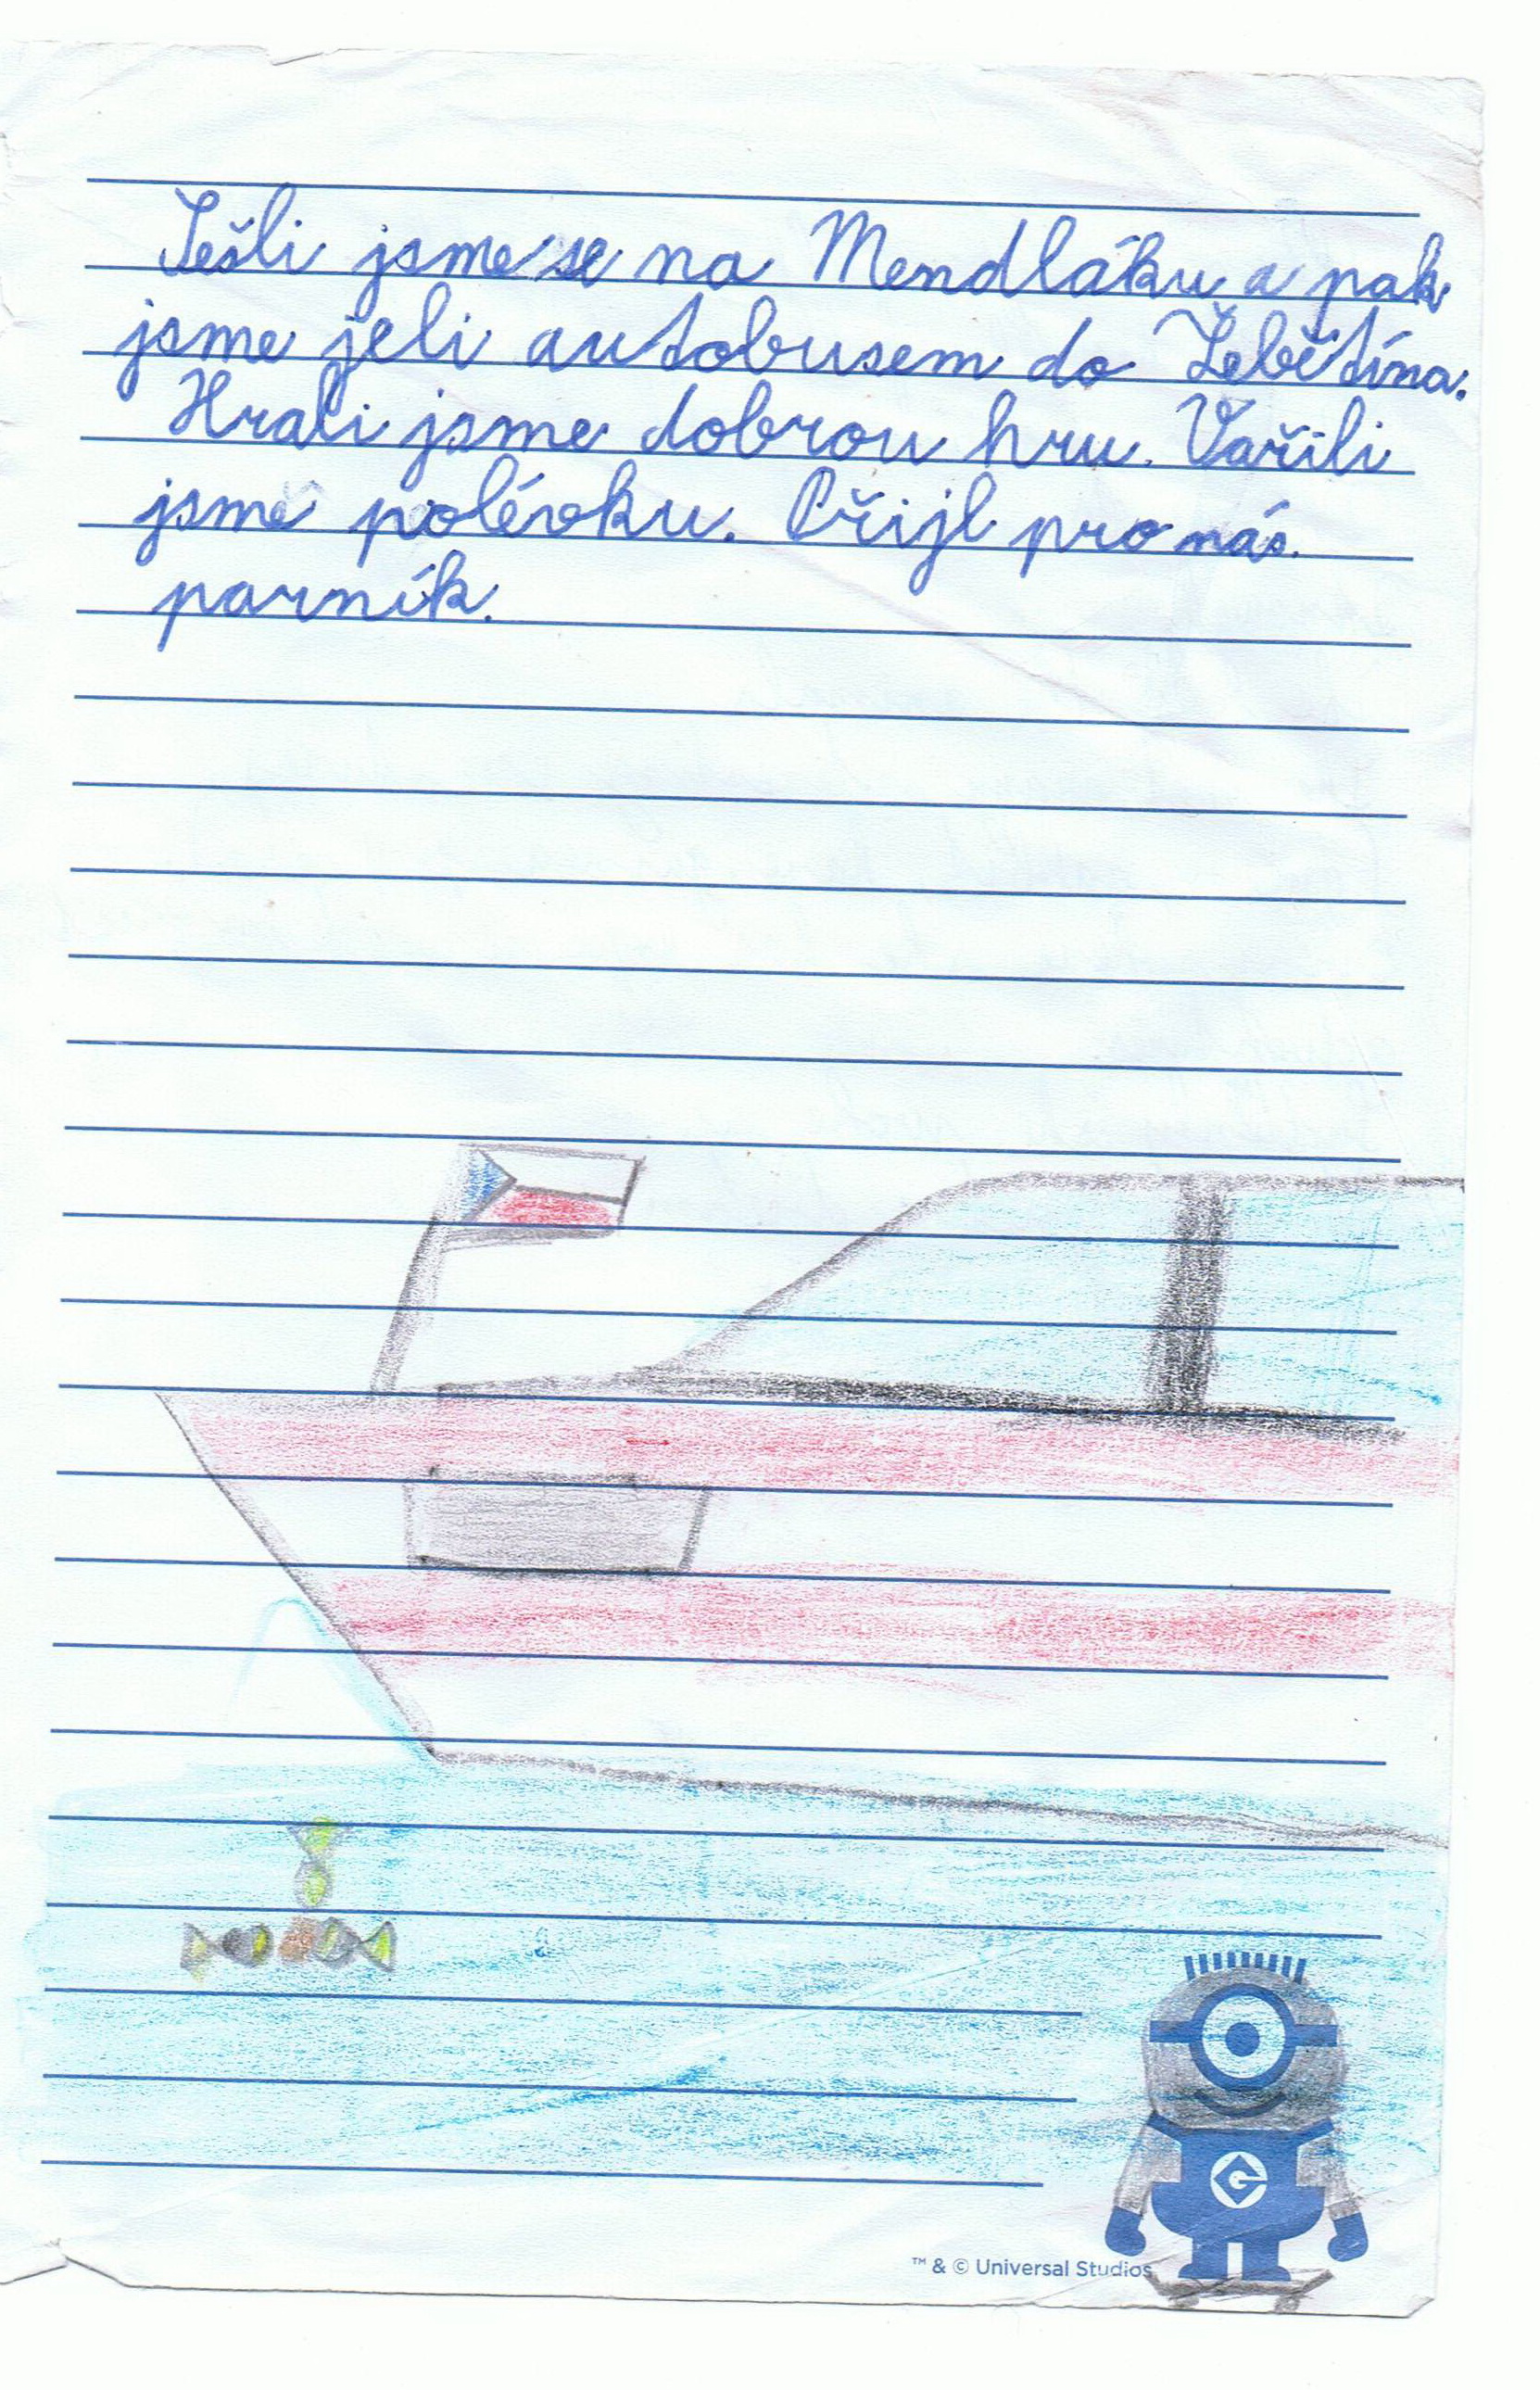 Sešli jsme se na Mendláku a pak
jsme jeli autobusem do Žebětína.
Hrali jsme dobrou hru. Vařili
jsme polévku. Přijl pro nás
parník.
™ & © Universal Studios